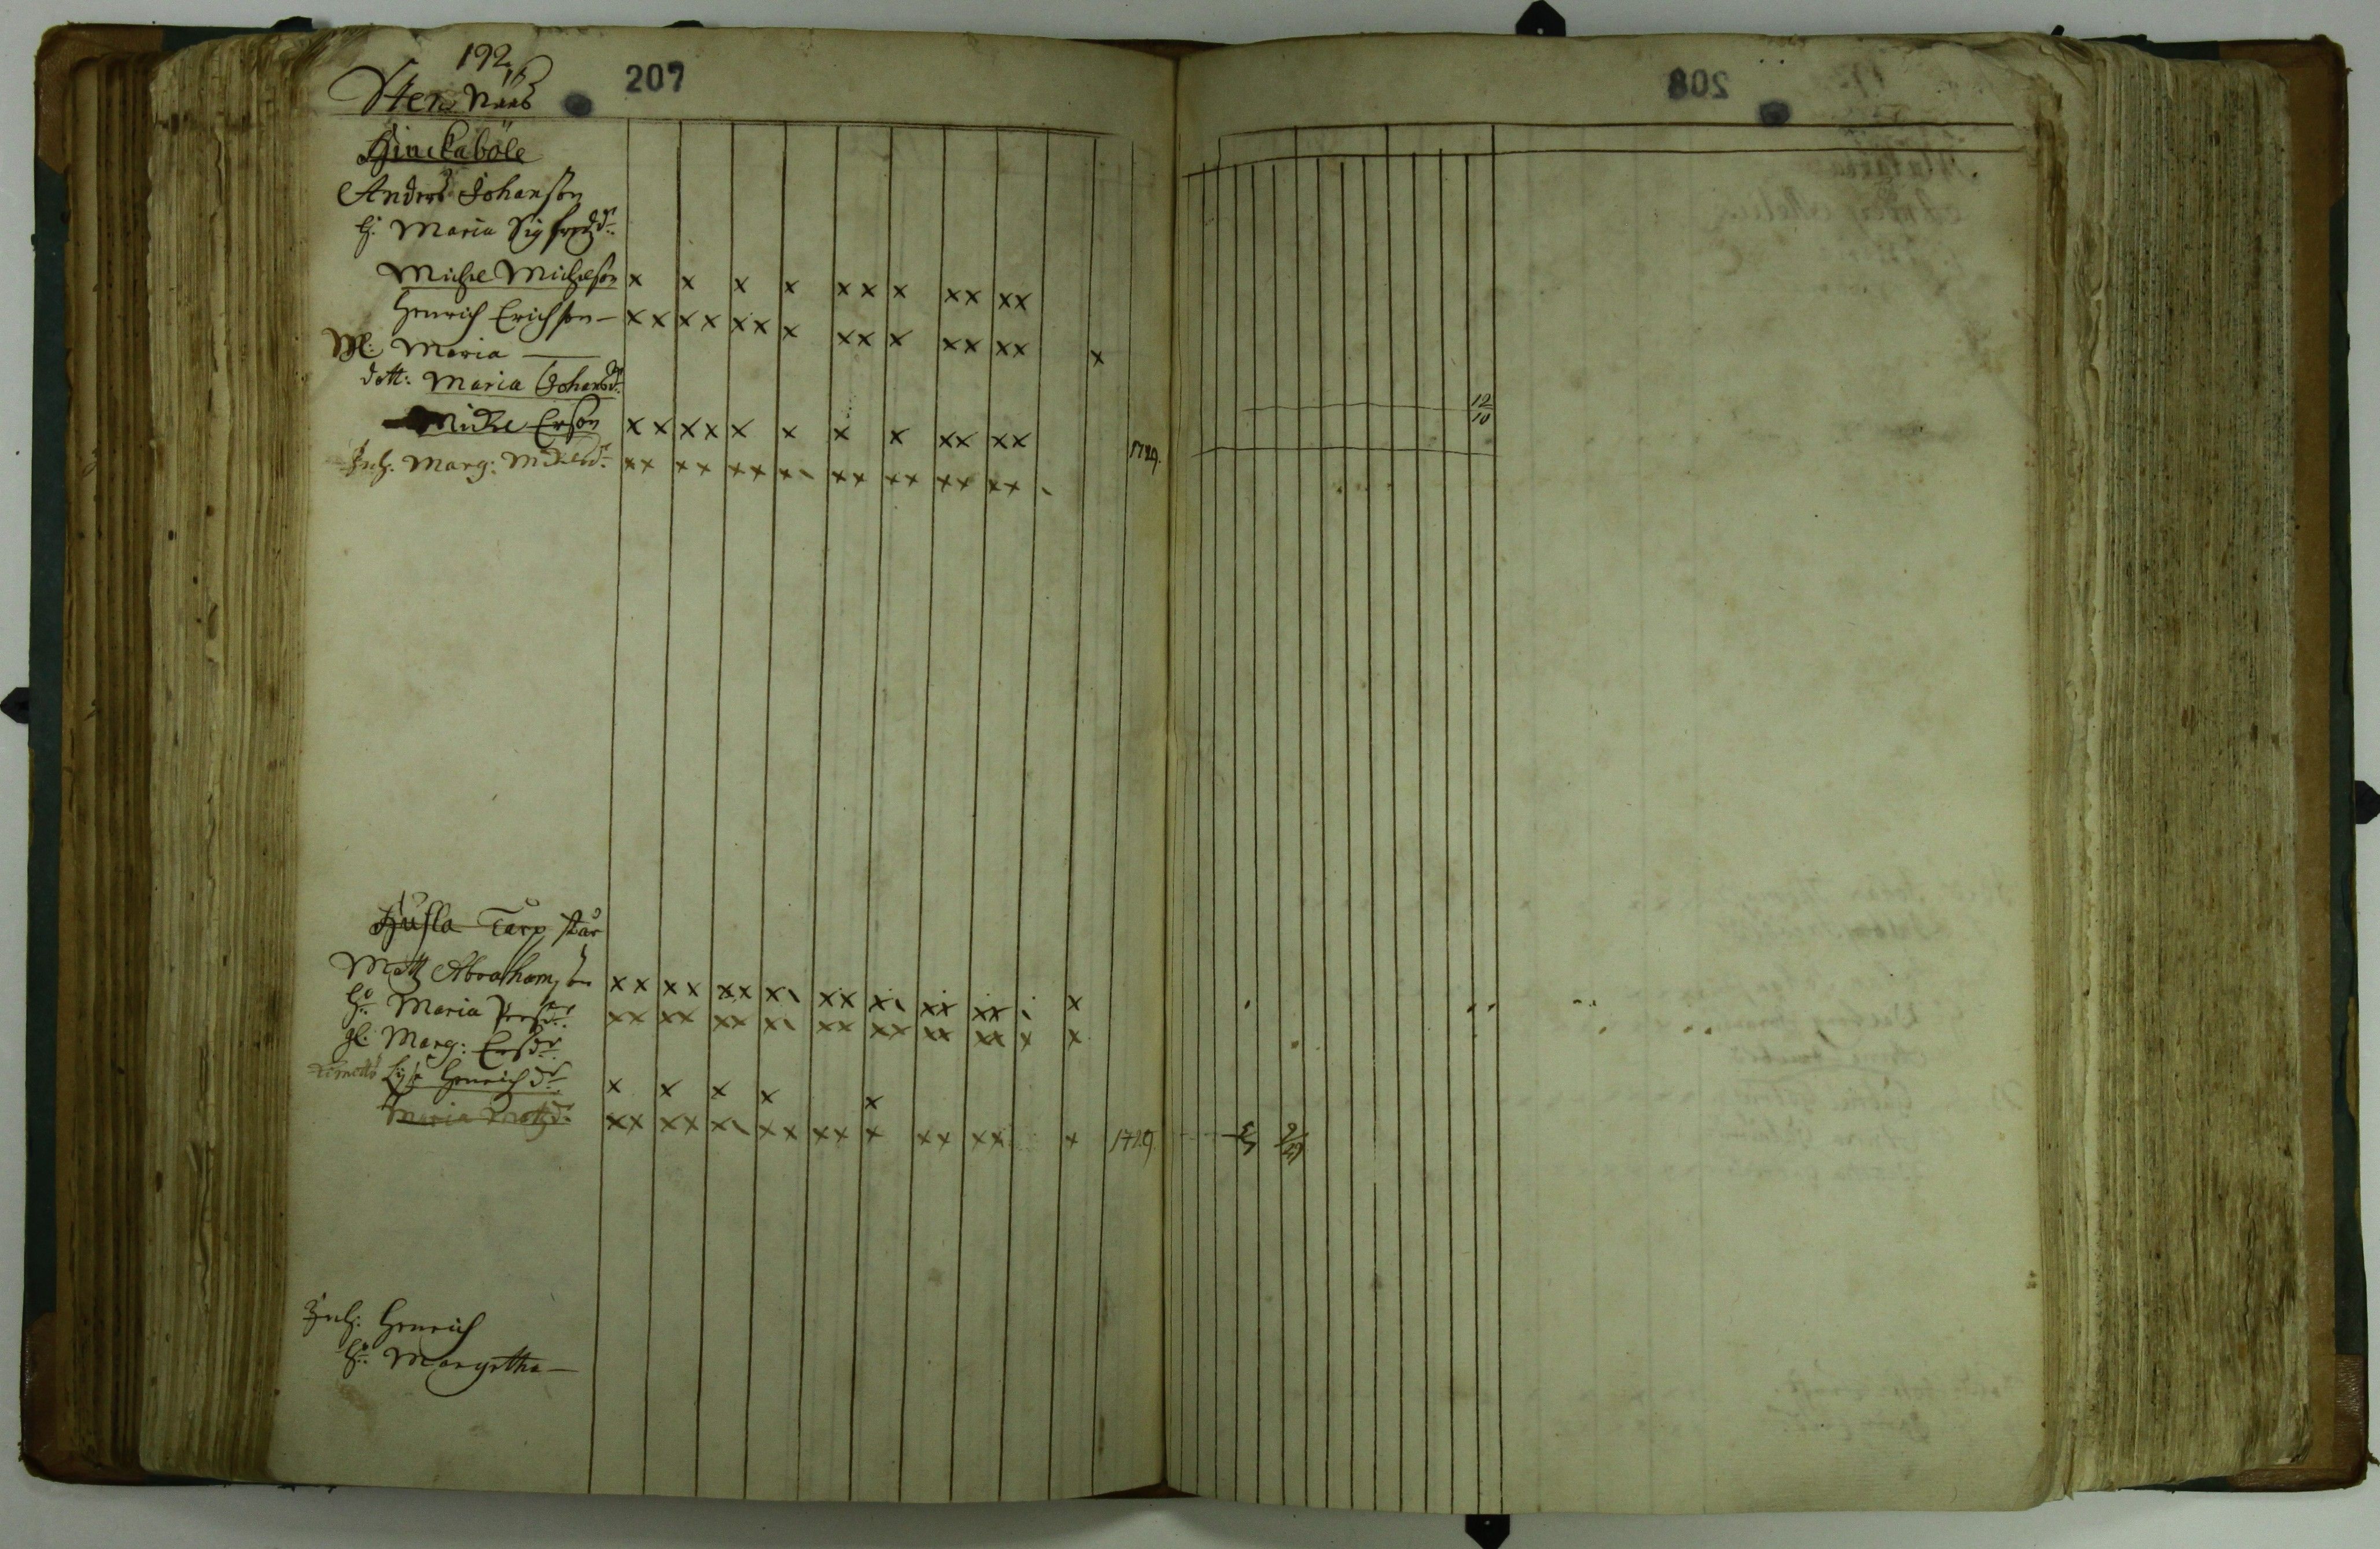 192
207
Stensnäs
Hinckaböle
Anders Johanson
h: Maria Sigfredzdr
Michel Michelson x x x x xx x xx xx
Henrich Erichson xx xx xx x xx x xx xx
Ml: Maria x
dott: Maria Johansdr
Michel Erson xx xx x x x x xx xx
Inh. Marg: Michelsdr xx xx xx x xx xx xx xx
1729.
Husla Tarp står
Matz Abrahamson xx xx xx x xx x xx xx x
hu Maria xx xx xx x xx xx xx xx x x
gl: Marg: Ersdr
Lisa Henrichsdr x x x x x
Maria Matzdr xx xx x xx xx x xx xx x 1729
Inh: Henrich
hu: Margetha
208
12/10